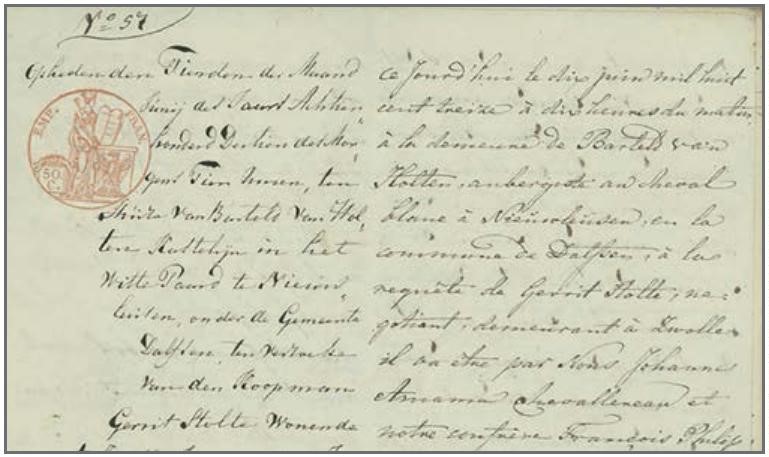 No 57
Opheden den Tienden der Maand
Junij des Jaars Achtien
honderd Dertien des Mor
gens Tien Uuren, ten
Huize van Barteld van Hol
ten Kastelijn in het
Witte Paard te Nieuw
leusen, onder de Gemeente
Dalfsen, ten verzoeke
van den Koopman
Gerrit Stolte Wonende
EMP. FRAN.
50
C.
ce jourd'hui le dix juin mil huit
cent treize à dix heures du matin,
à la demeure de Barteld van
Holten, aubergiste au cheval
blanc à Nieuwleusen, en la
commune de Dalfsen, à la
requête de Gerrit Stolte, ne-
gotiant, demeurant à Zwolle
il va être par Nous Johannes
Amama Chevallereau et
notre confrère François Philip